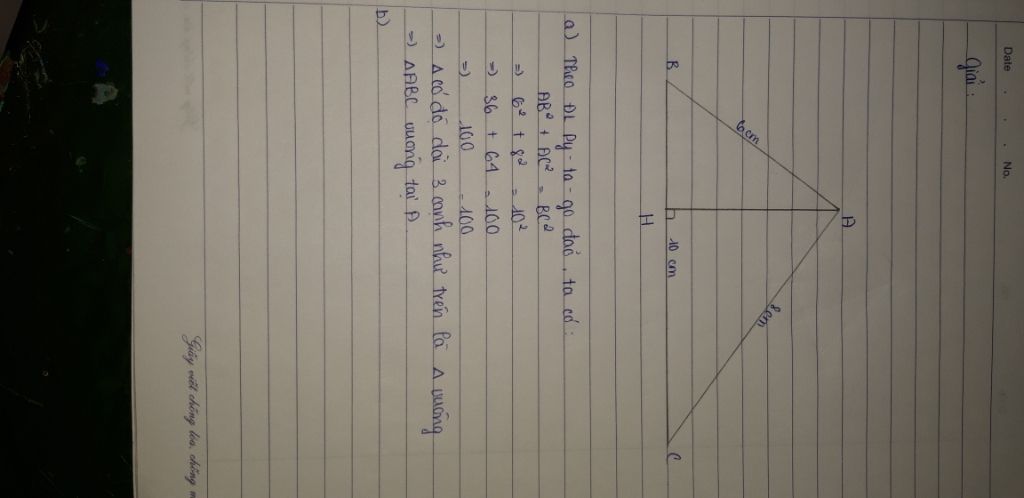 Date . . . No.
Giải:
A
6cm
8cm
B
H
10 cm
C
a) Theo ĐL Py-ta-go đảo, ta có:
AB² + AC² = BC²
=) 6² + 8² = 10²
=) 36 + 64 = 100
=) 100 = 100
=) Δ có độ dài 3 cạnh như trên là Δ vuông
=) ΔABC vuông tại A
b)
Giấy viết chống lóa, chống